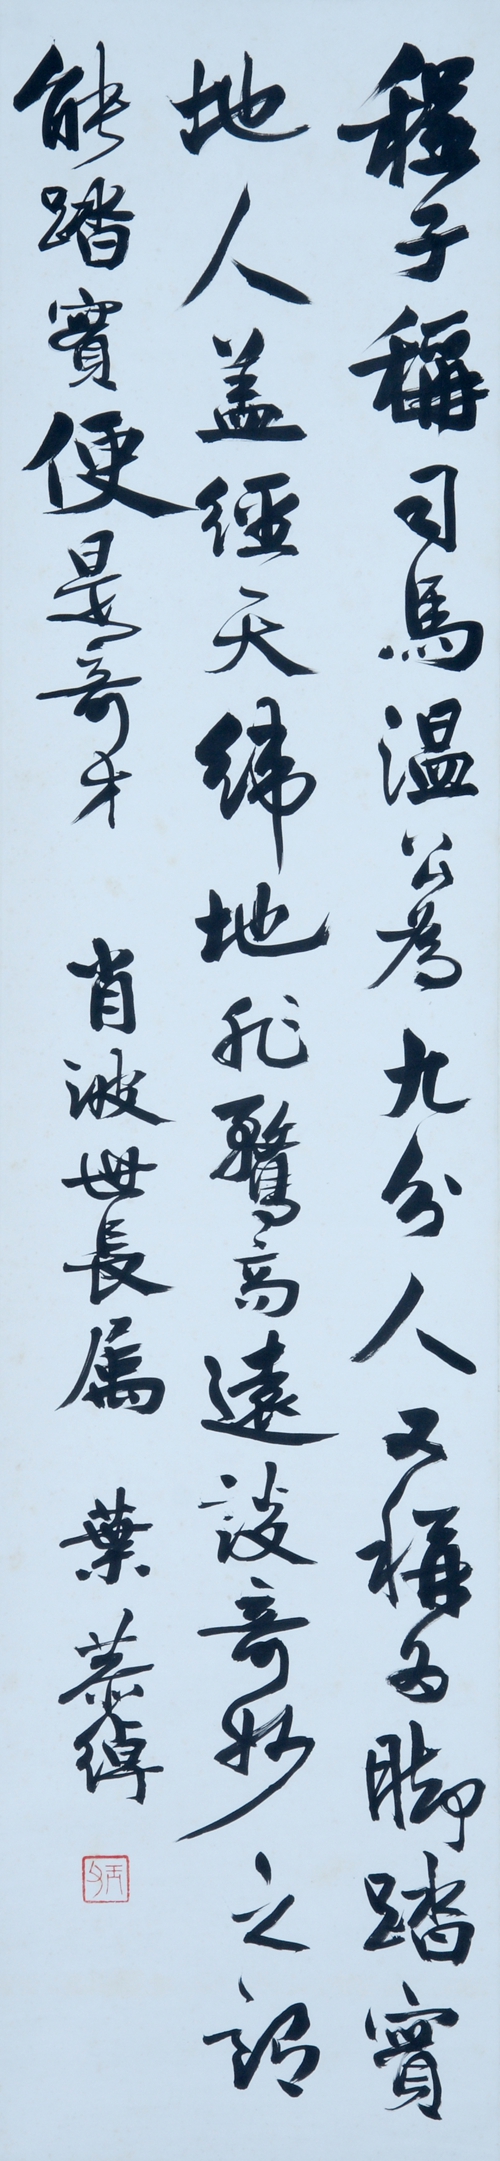 程子稱司馬溫公為九分人又稱為脚踏實
地人盖經天緯地非騖高遠談奇妙之謂
能踏實便是奇才 肖波世長屬 葉恭綽